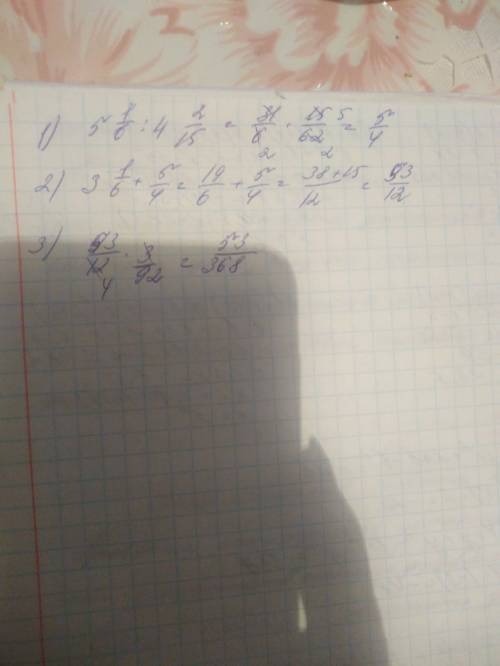 1) 5 1/6 : 4 2/15 = 31/6 · 15/62 = 5/4
2 5 2
2) 3 1/6 + 5/4 = 19/6 + 5/4 = 38+15/12 = 53/12
3) 53/12 · 3/92 = 53/368
4